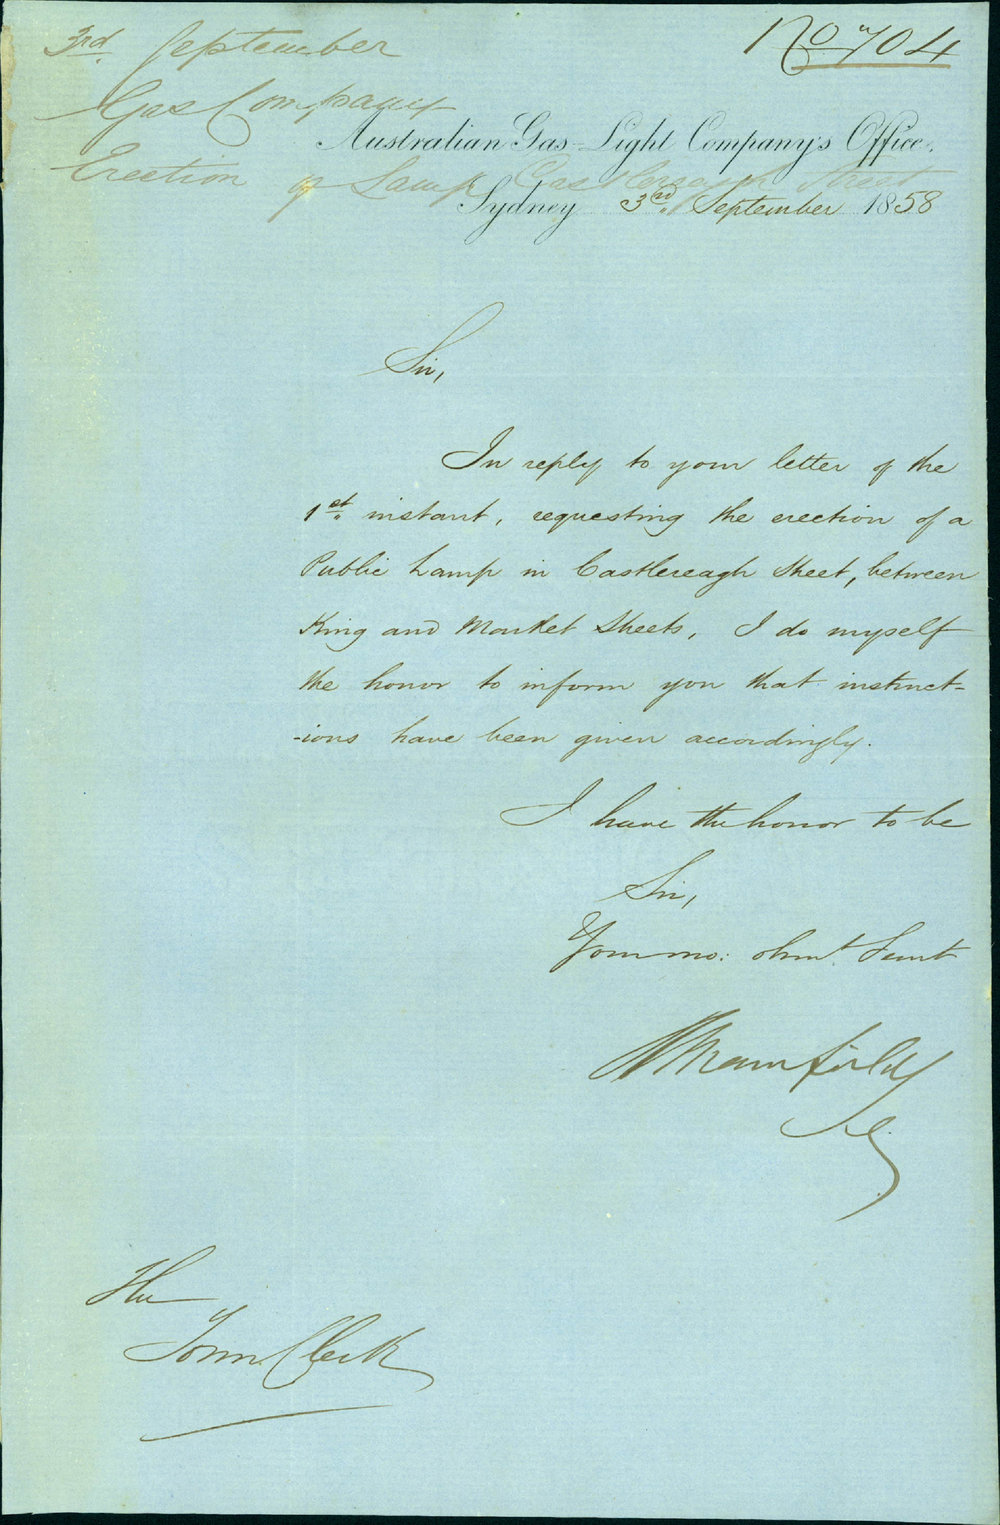 3rd September
No 704
Gas Company
Australian Gas-Light Company's Office,
Erection of Lamp Castlereagh Street
Sydney 3rd September 1858
Sir,
In reply to your letter of the
1st instant, requesting the erection of a
Public Lamp in Castlereagh Street, between
King and Market Streets, I do myself
the honor to inform you that instruct-
-ions have been given accordingly.
I have the honor to be
Sir,
Your mo: obnt. Servt
Mansfield
Sec.
The
Town Clerk